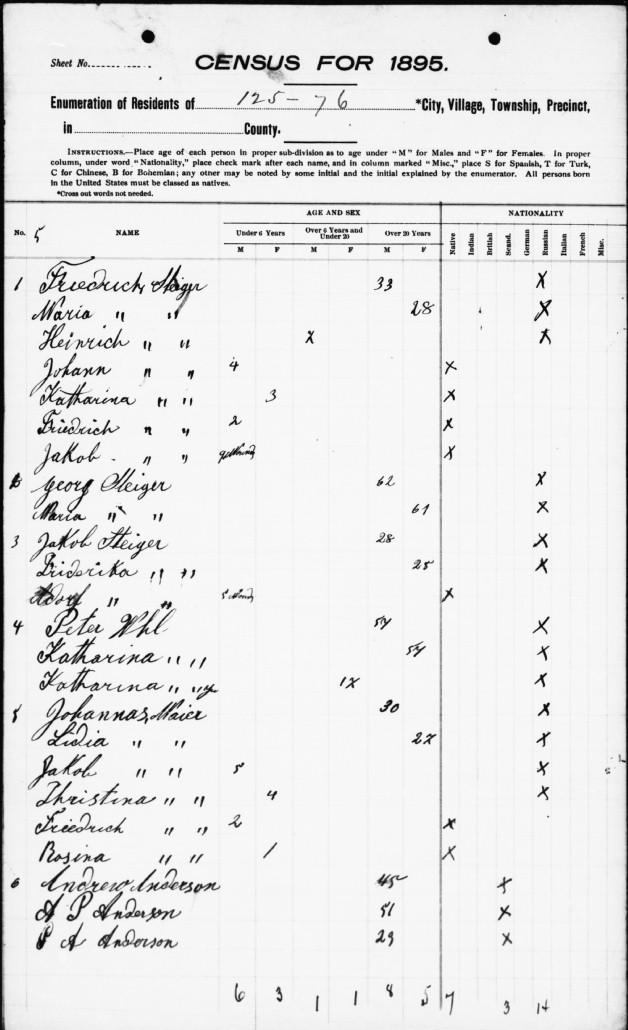 Sheet No.
CENSUS FOR 1895.
Enumeration of Residents of 125-76 *City, Village, Township, Precinct,
in County.
INSTRUCTIONS.—Place age of each person in proper sub-division as to age under "M" for Males and "F" for Females. In proper
column, under word "Nationality," place check mark after each name, and in column marked "Misc.," place S for Spanish, T for Turk,
C for Chinese, B for Bohemian; any other may be noted by some initial and the initial explained by the enumerator. All persons born
in the United States must be classed as natives.
*Cross out words not needed.
AGE AND SEX NATIONALITY
No. 5 NAME Under 6 Years Over 6 Years and Under 20 Over 20 Years Native Indian British Scand. German Russian Italian French Misc.
M F M F M F
1 Friedrich Steiger 33 X
Maria " " 28 X
Heinrich " " X
Johann " " 4 X
Katharina " " 3 X
Friedrich " " 2 X
Jakob " " X
2 Georg Steiger 62 X
Maria " " 61 X
3 Jakob Steiger 28 X
Friderika " " 25 X
" " 5 X
4 Peter Uhl 54 X
Katharina " " 54 X
Katharina " " X
5 Johannas Maier 30 X
Lidia " " X
Jakob " " 5 X
Christina " " 4 X
Friedrich " " 2 X
Rosina " " 1 X
6 Andrew Anderson 45 X
A P Anderson 51 X
P A Anderson 29 X
6 3 1 1 8 5 7 3 14